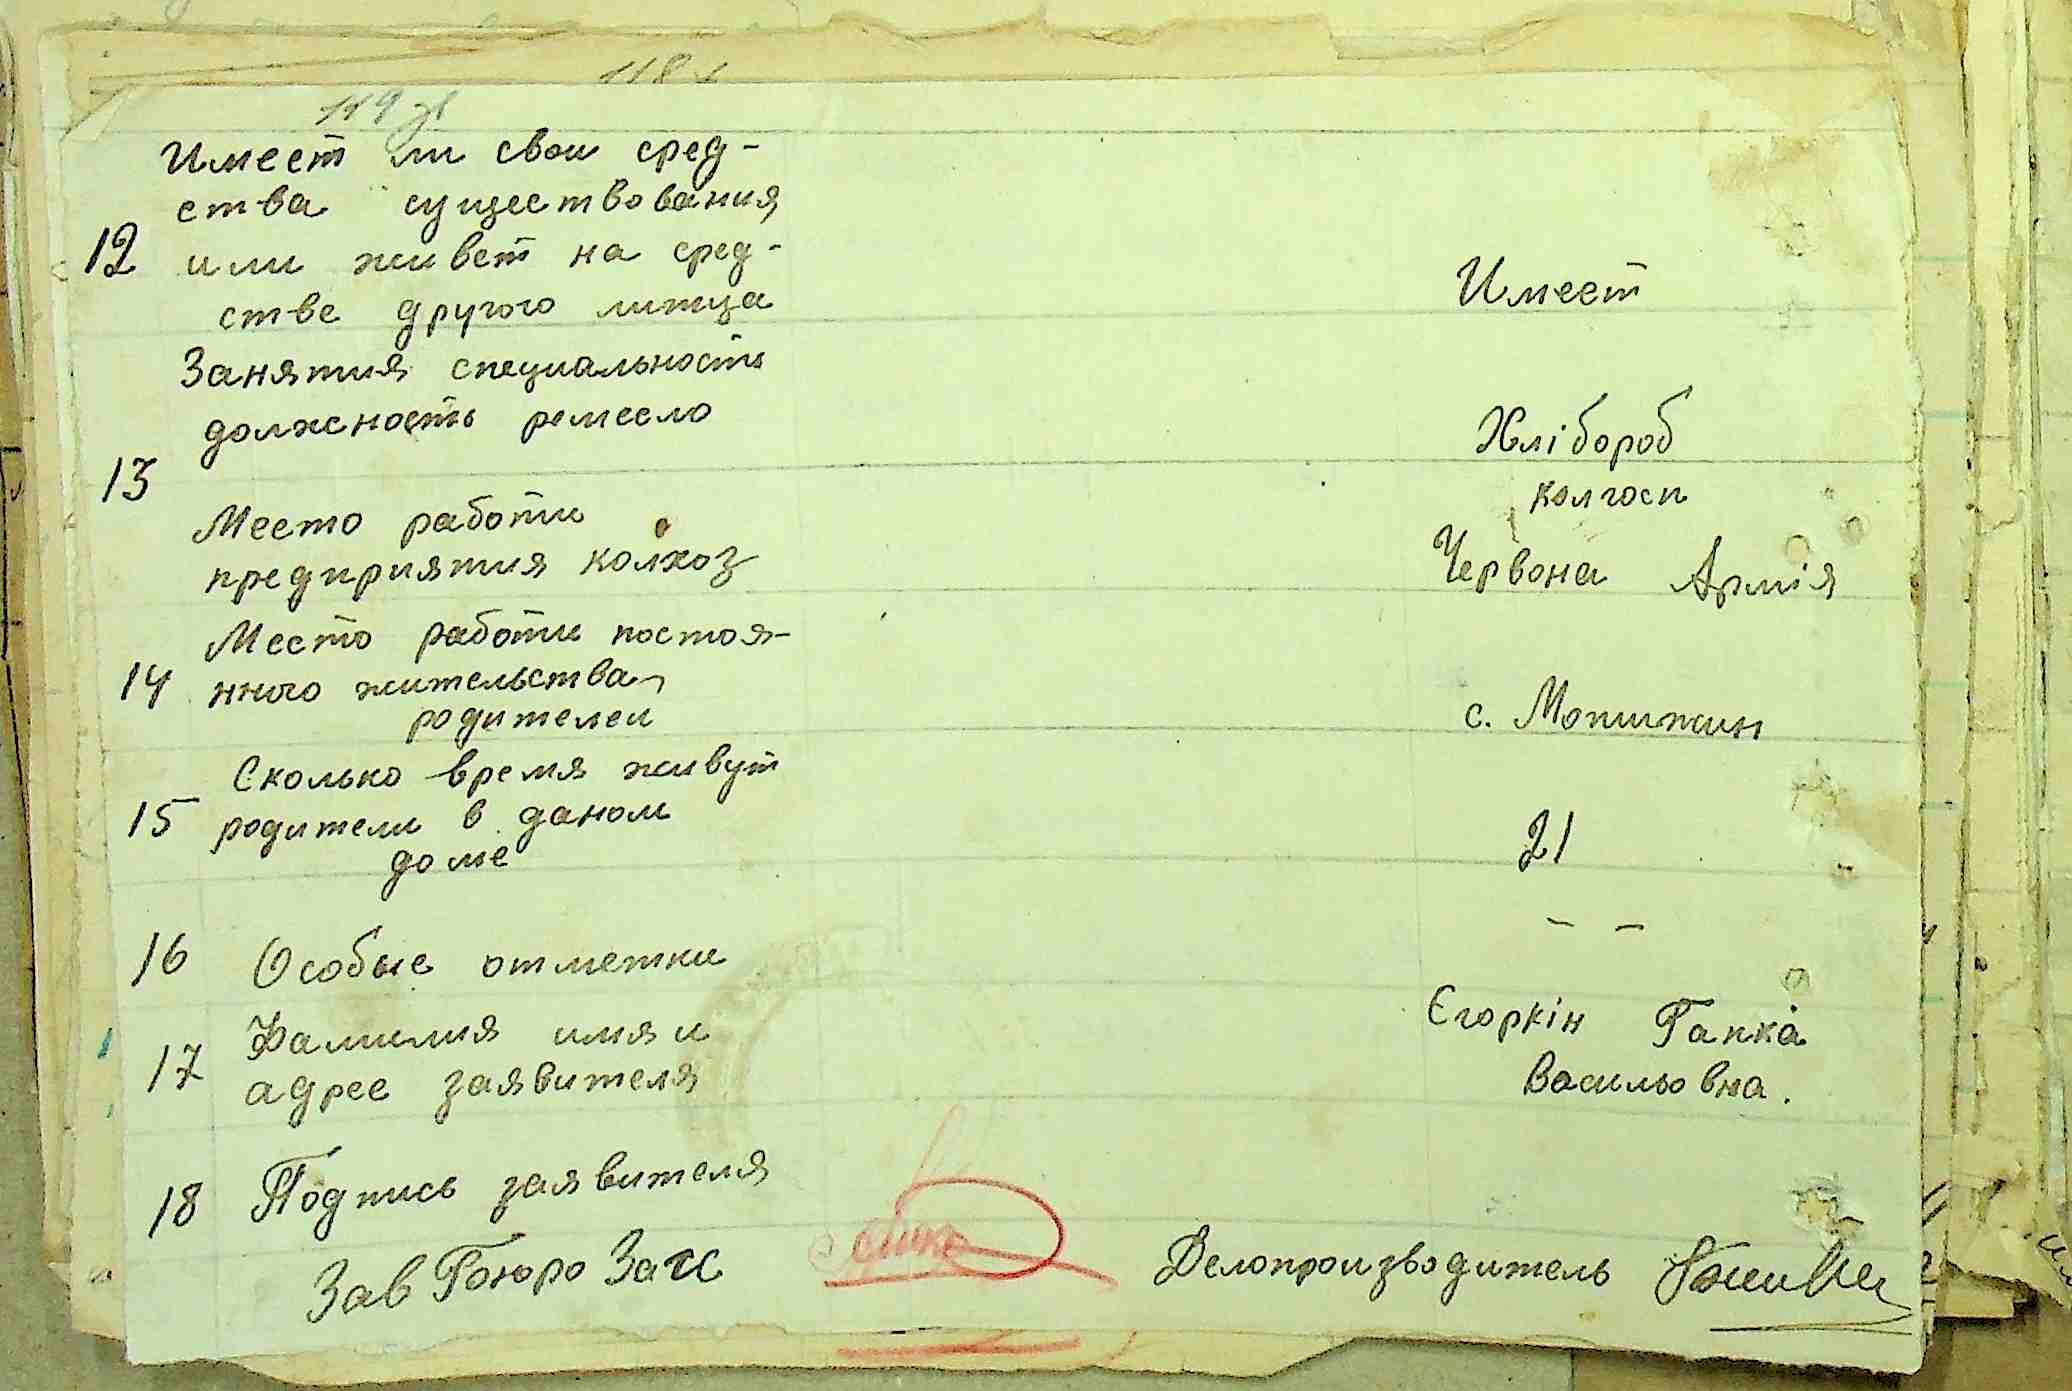 119 зв
Имеет ли свои сред-
ства существования
12 или живет на сред-
стве другого лица
Имеет
Занятия специальность
должность ремесло
13
Хлібороб
колгосп
Место работи
предприятия колхоз
Червона Армія
Место работи постоя-
14 нного жительства
родителеи
с. Мотижин
Сколько время живут
15 родители в даном
доме
21
16 Особые отметки
— —
17 Фамилия имя и
адрес заявителя
Єгоркін Гапка
Васильовна.
18 Подпись заявителя
Зав Бюро Загс
Делопроизводитель